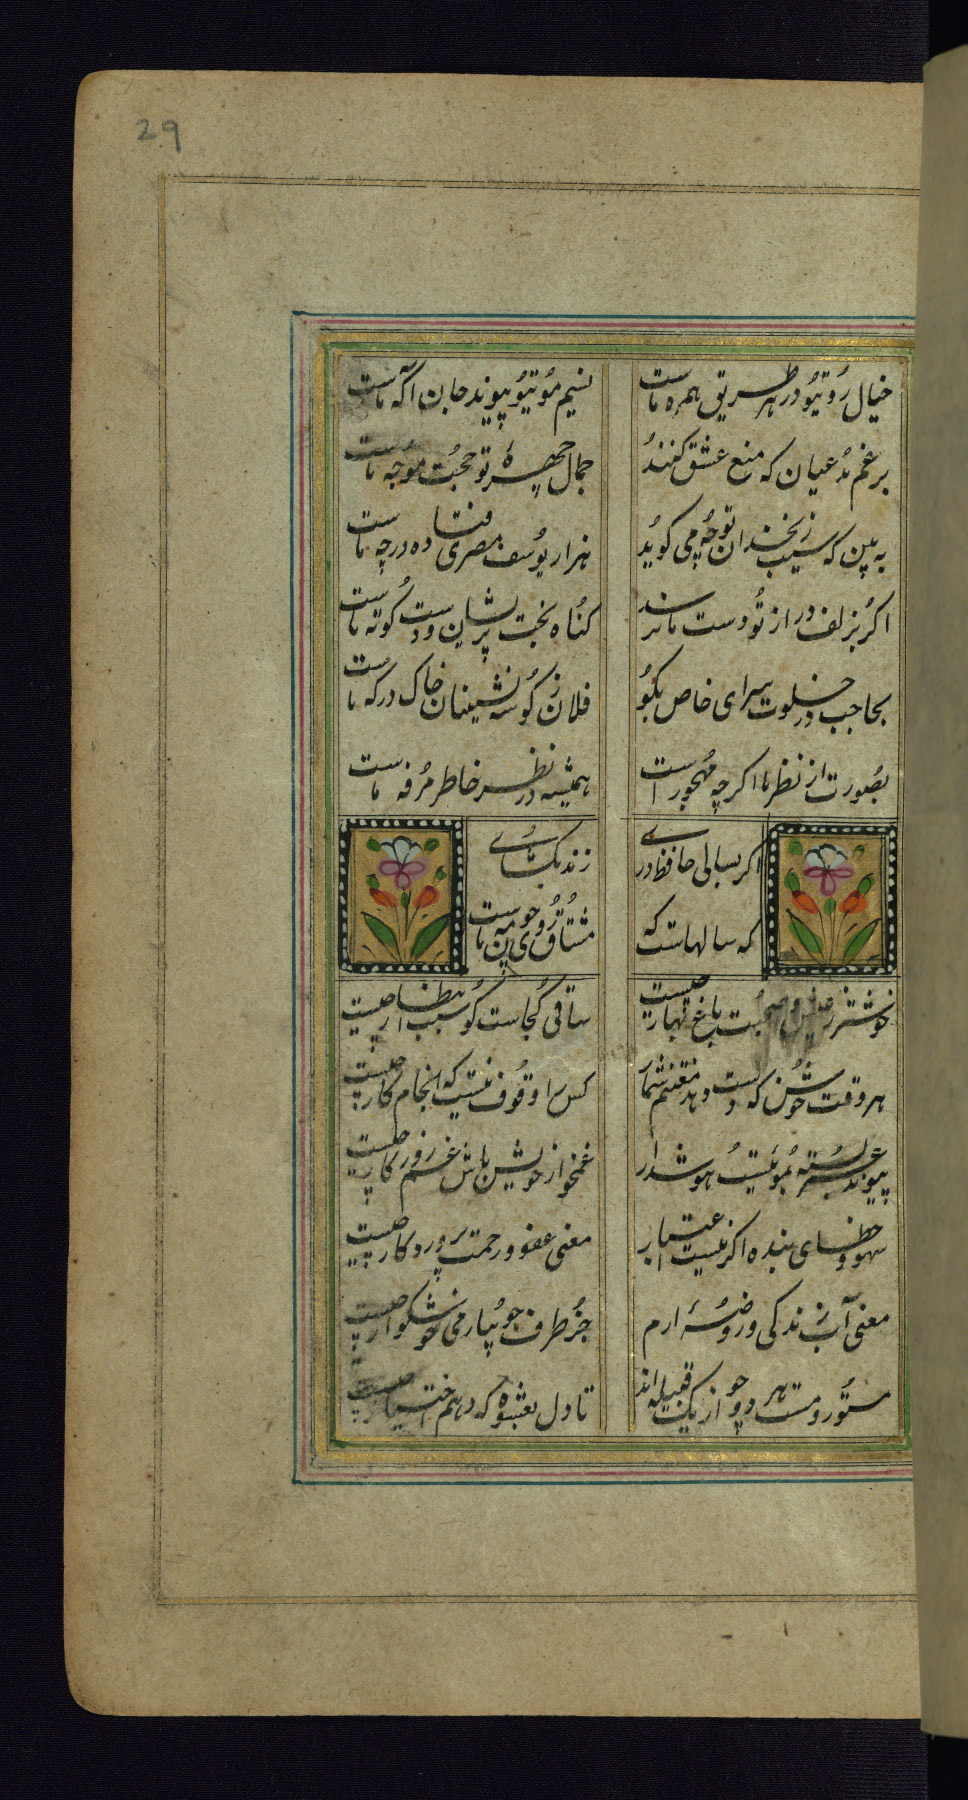 29
خیال روتیو در هر طریق همره ماست
نسیم موتیو پیوند جان آکه ماست
برغم مدعیان که منع عشق کنند
جمال چهرهٔ تو حجت موجه ماست
به بین که سیب زنخدان تو چه می کوید
هزار یوسف مصری فتاده در چه ماست
اکر بزلف دراز تو دست ما نرسد
کناه بخت پریشان و دست کوته ماست
بحاجب در خلوت سرای خاص بکو
فلان ز کوشه نشینان خاک درکه ماست
بصورت از نظر ما اکرچه مهجور است
همیشه در نظر خاطر مرفه ماست
اکر بسالی حافظ دری
زند بکشای
که سالهاست که
مشتاق روی چو مه ماست
خوشتر ز عیش و صحبت باغ و بهار چیست
ساقی کجاست کو سبب انتظار چیست
هر وقت خوش که دست دهد مغتنم شمار
کس را وقوف نیست که انجام کار چیست
پیوند عمر بسته بموئیست هوشدار
غمخوار خویش باش غم روزکار چیست
سهو و خطای بنده اکر نیست اعتبار
معنی عفو و رحمت پروردکار چیست
معنی آب زندکی و روضهٔ ارم
جز طرف جویبار می خوشکوار چیست
مستور و مست هر دو چو از یک قبیله اند
تا دل بعشوه که دهم اختیار چیست